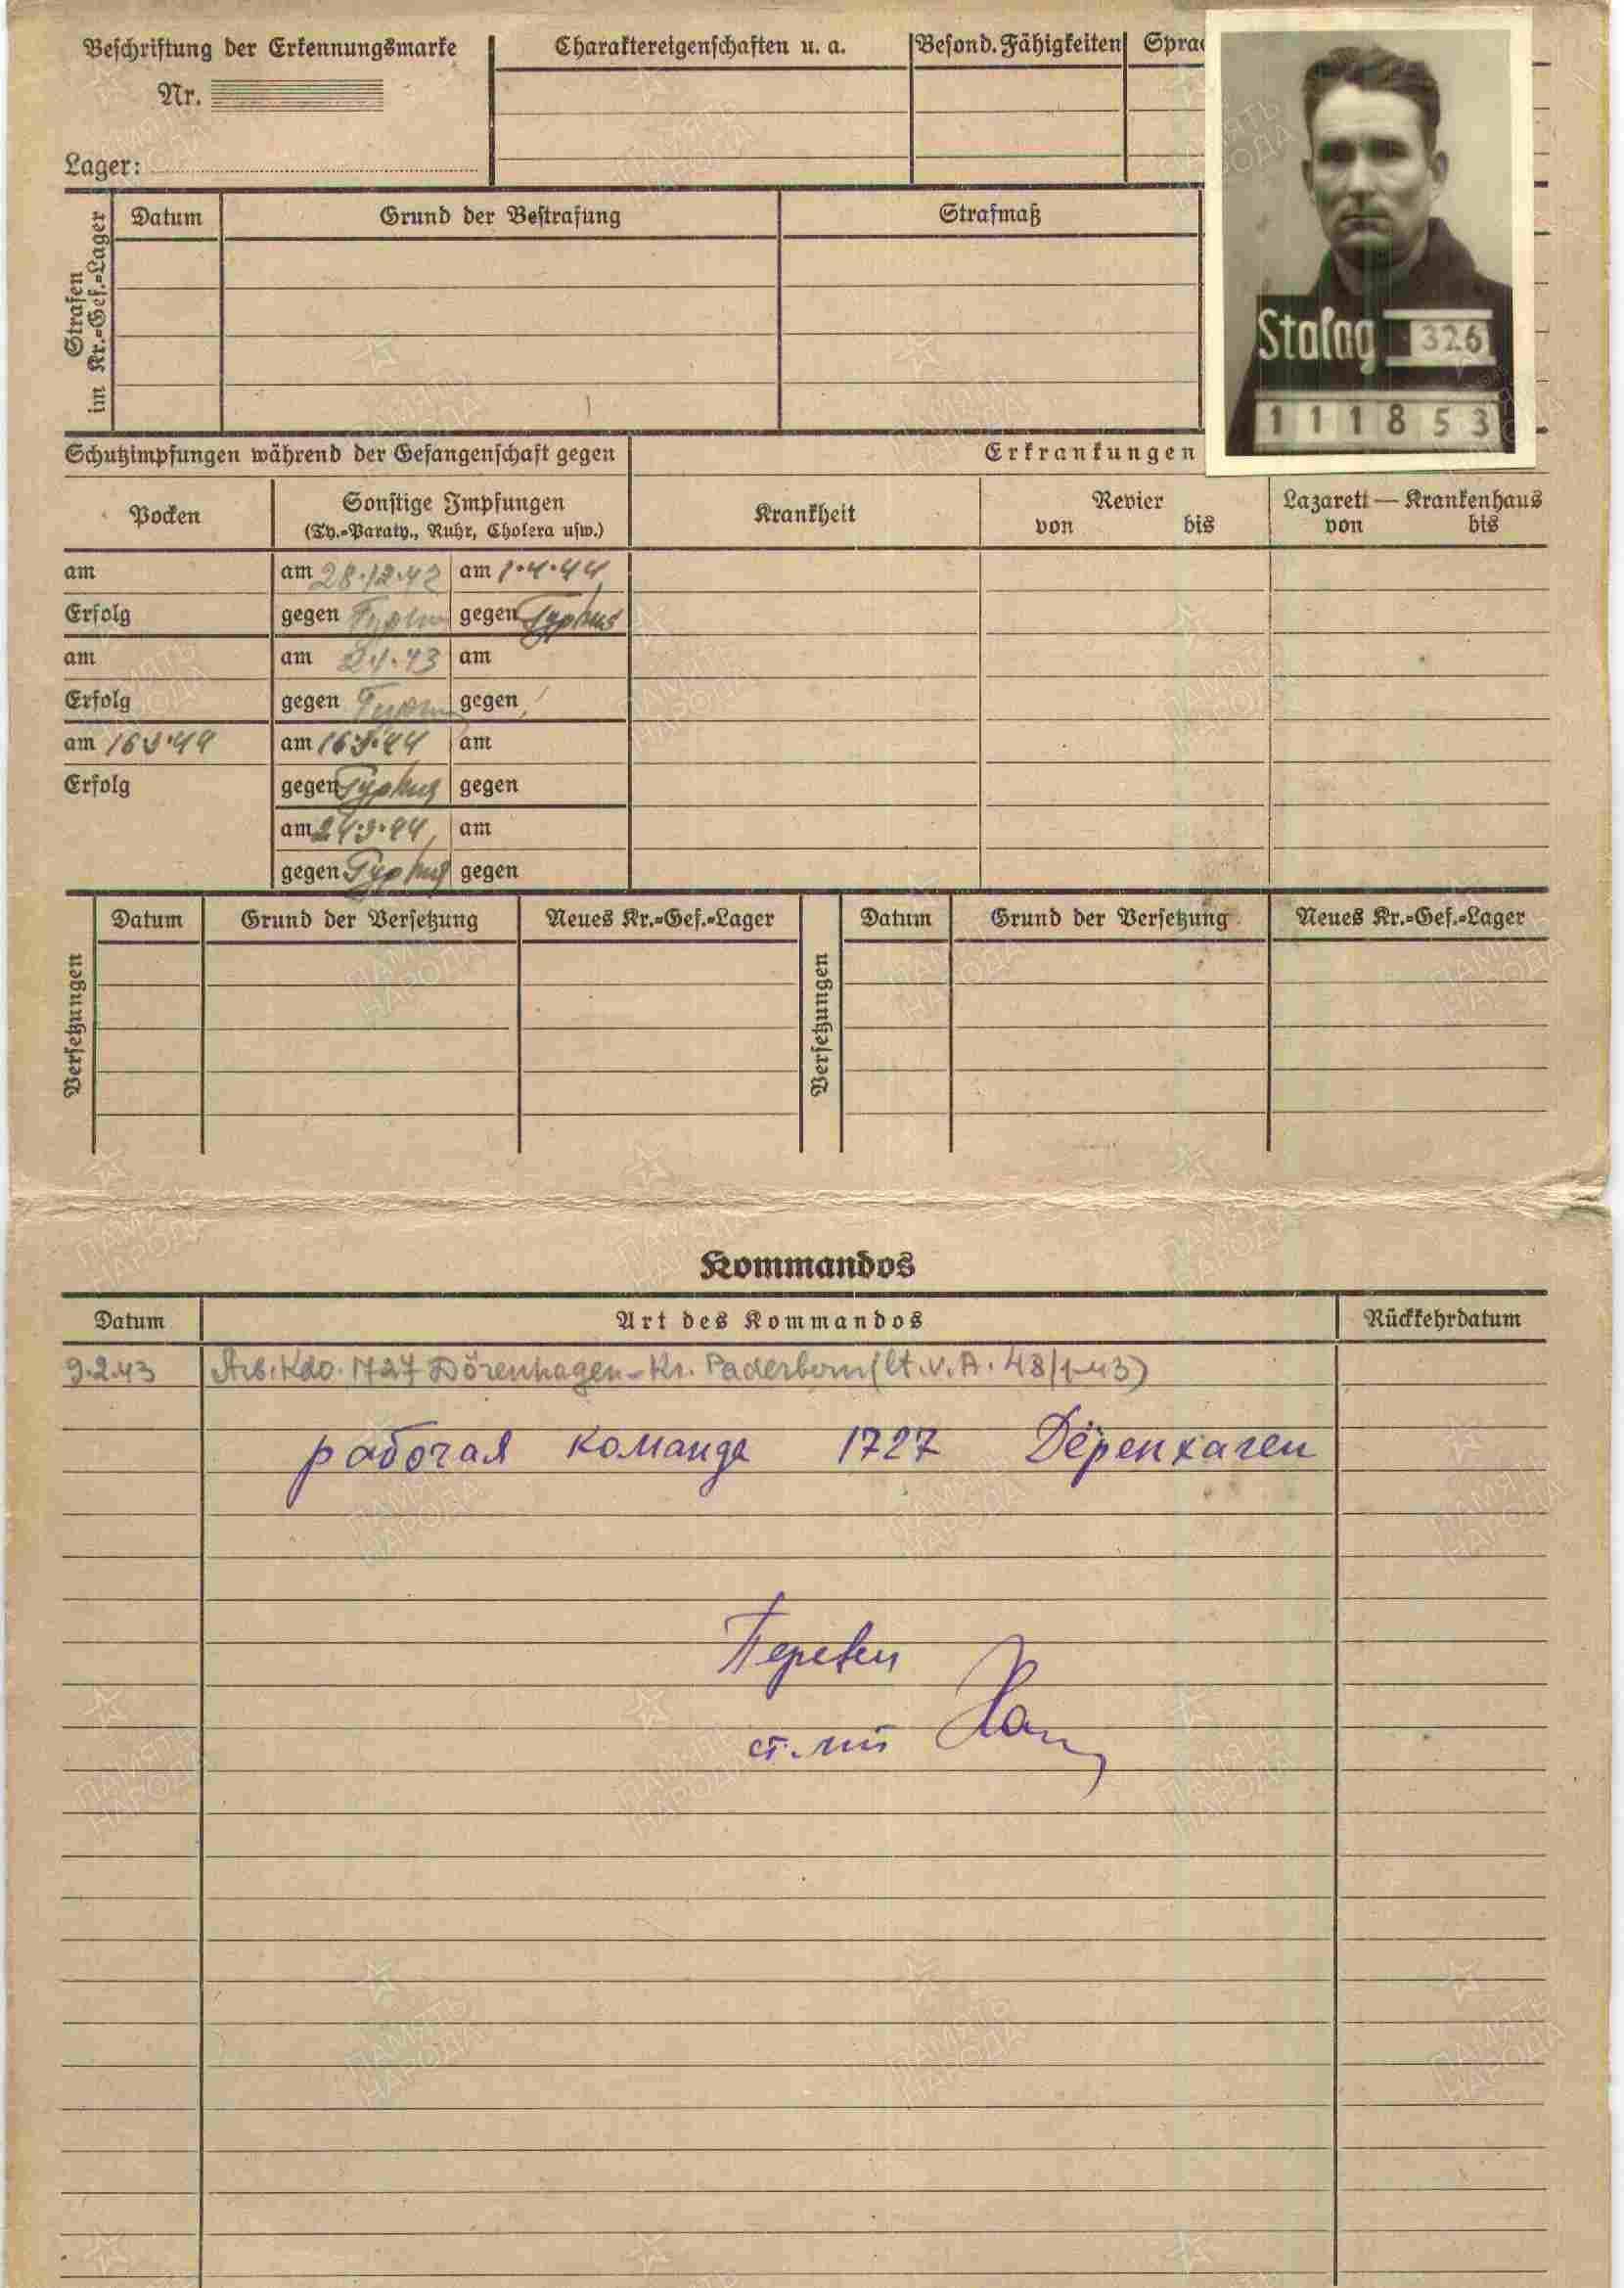 Beschriftung der Erkennungsmarke
Nr.
Lager:
Charaktereigenschaften u. a.
Besond. Fähigkeiten
Sprac
Stalag 326
111853
Strafen
im Kr.=Gef.=Lager
Datum
Grund der Bestrafung
Strafmaß
Schutzimpfungen während der Gefangenschaft gegen
Erkrankungen
Pocken
Sonstige Impfungen
(Ty.=Paraty., Ruhr, Cholera usw.)
Krankheit
Revier
von bis
Lazarett — Krankenhaus
von bis
am
am 28.12.42
am 1.4.44
Erfolg
gegen Typhus
gegen Typhus
am
am 2.1.43
am
Erfolg
gegen
gegen
am 16 3.44
am 16.3.44
am
Erfolg
gegen Typhus
gegen
am 24.3.44
am
gegen Typhus
gegen
Versetzungen
Datum
Grund der Versetzung
Neues Kr.=Gef.=Lager
Versetzungen
Datum
Grund der Versetzung
Neues Kr.=Gef.=Lager
Kommandos
Datum
Art des Kommandos
Rückkehrdatum
9.2.43 Arb.Kdo. 1727 Dörenhagen-Kr. Paderborn (lt. V. A. 48/1-43)
рабочая команда 1727 Дёренхаген
Перевел
ст. л-т
ПАМЯТЬ
НАРОДА